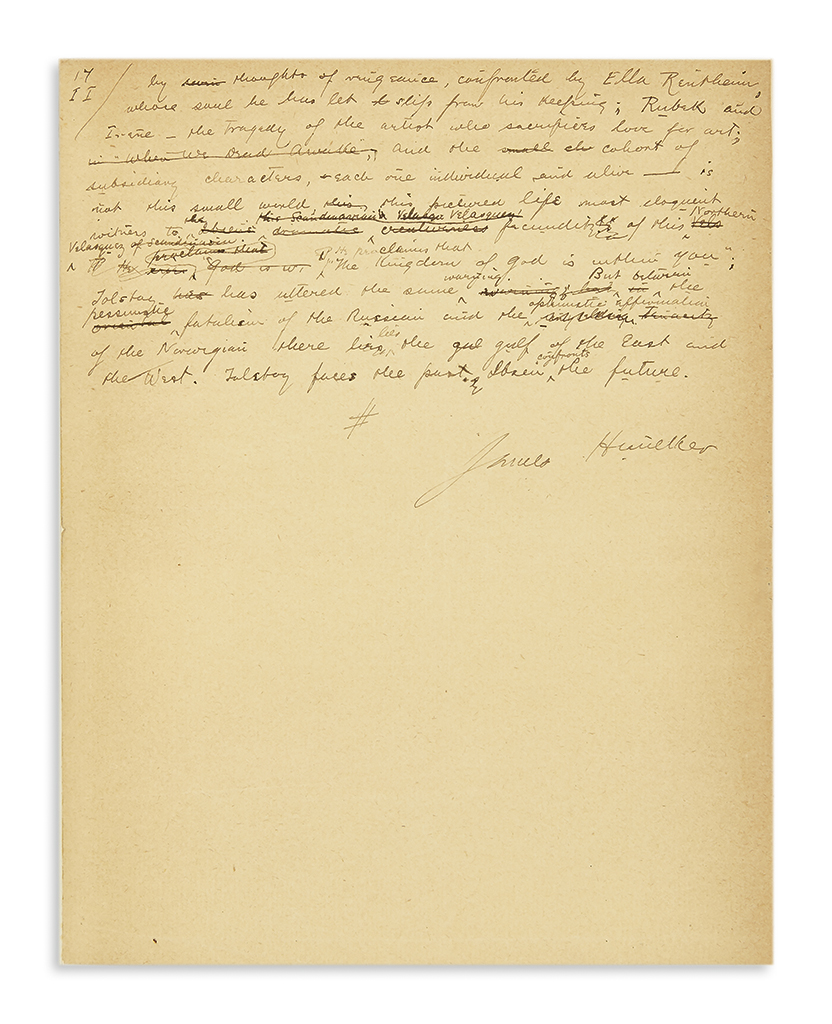 17
II
by thoughts of vengeance, confronted by Ella Rentheim,
whose soul he has let slip from his keeping; Rubek and
Irene — the tragedy of the artist who sacrifices love for art;
in "When We Dead Awake"; and the small cohort of
subsidiary characters, each one individual and alive — is
not this small world, this, this pictured life most eloquent
the this Scandinavian Velasqu Velasquez! Northern
witness to dramatic fecundity of this
Velasquez of Scandinavia. proclaims that He proclaims that
"God is w. "The Kingdom of God is within you";
warning. But between
Tolstoy has has uttered the same the
pessimistic optimistic affirmation
oriental fatalism of the Russian and the tenacity
lies
of the Norwegian there lies the gul gulf of the East and
confronts
the West. Tolstoy faces the past, Ibsen the future.
#
James Huneker